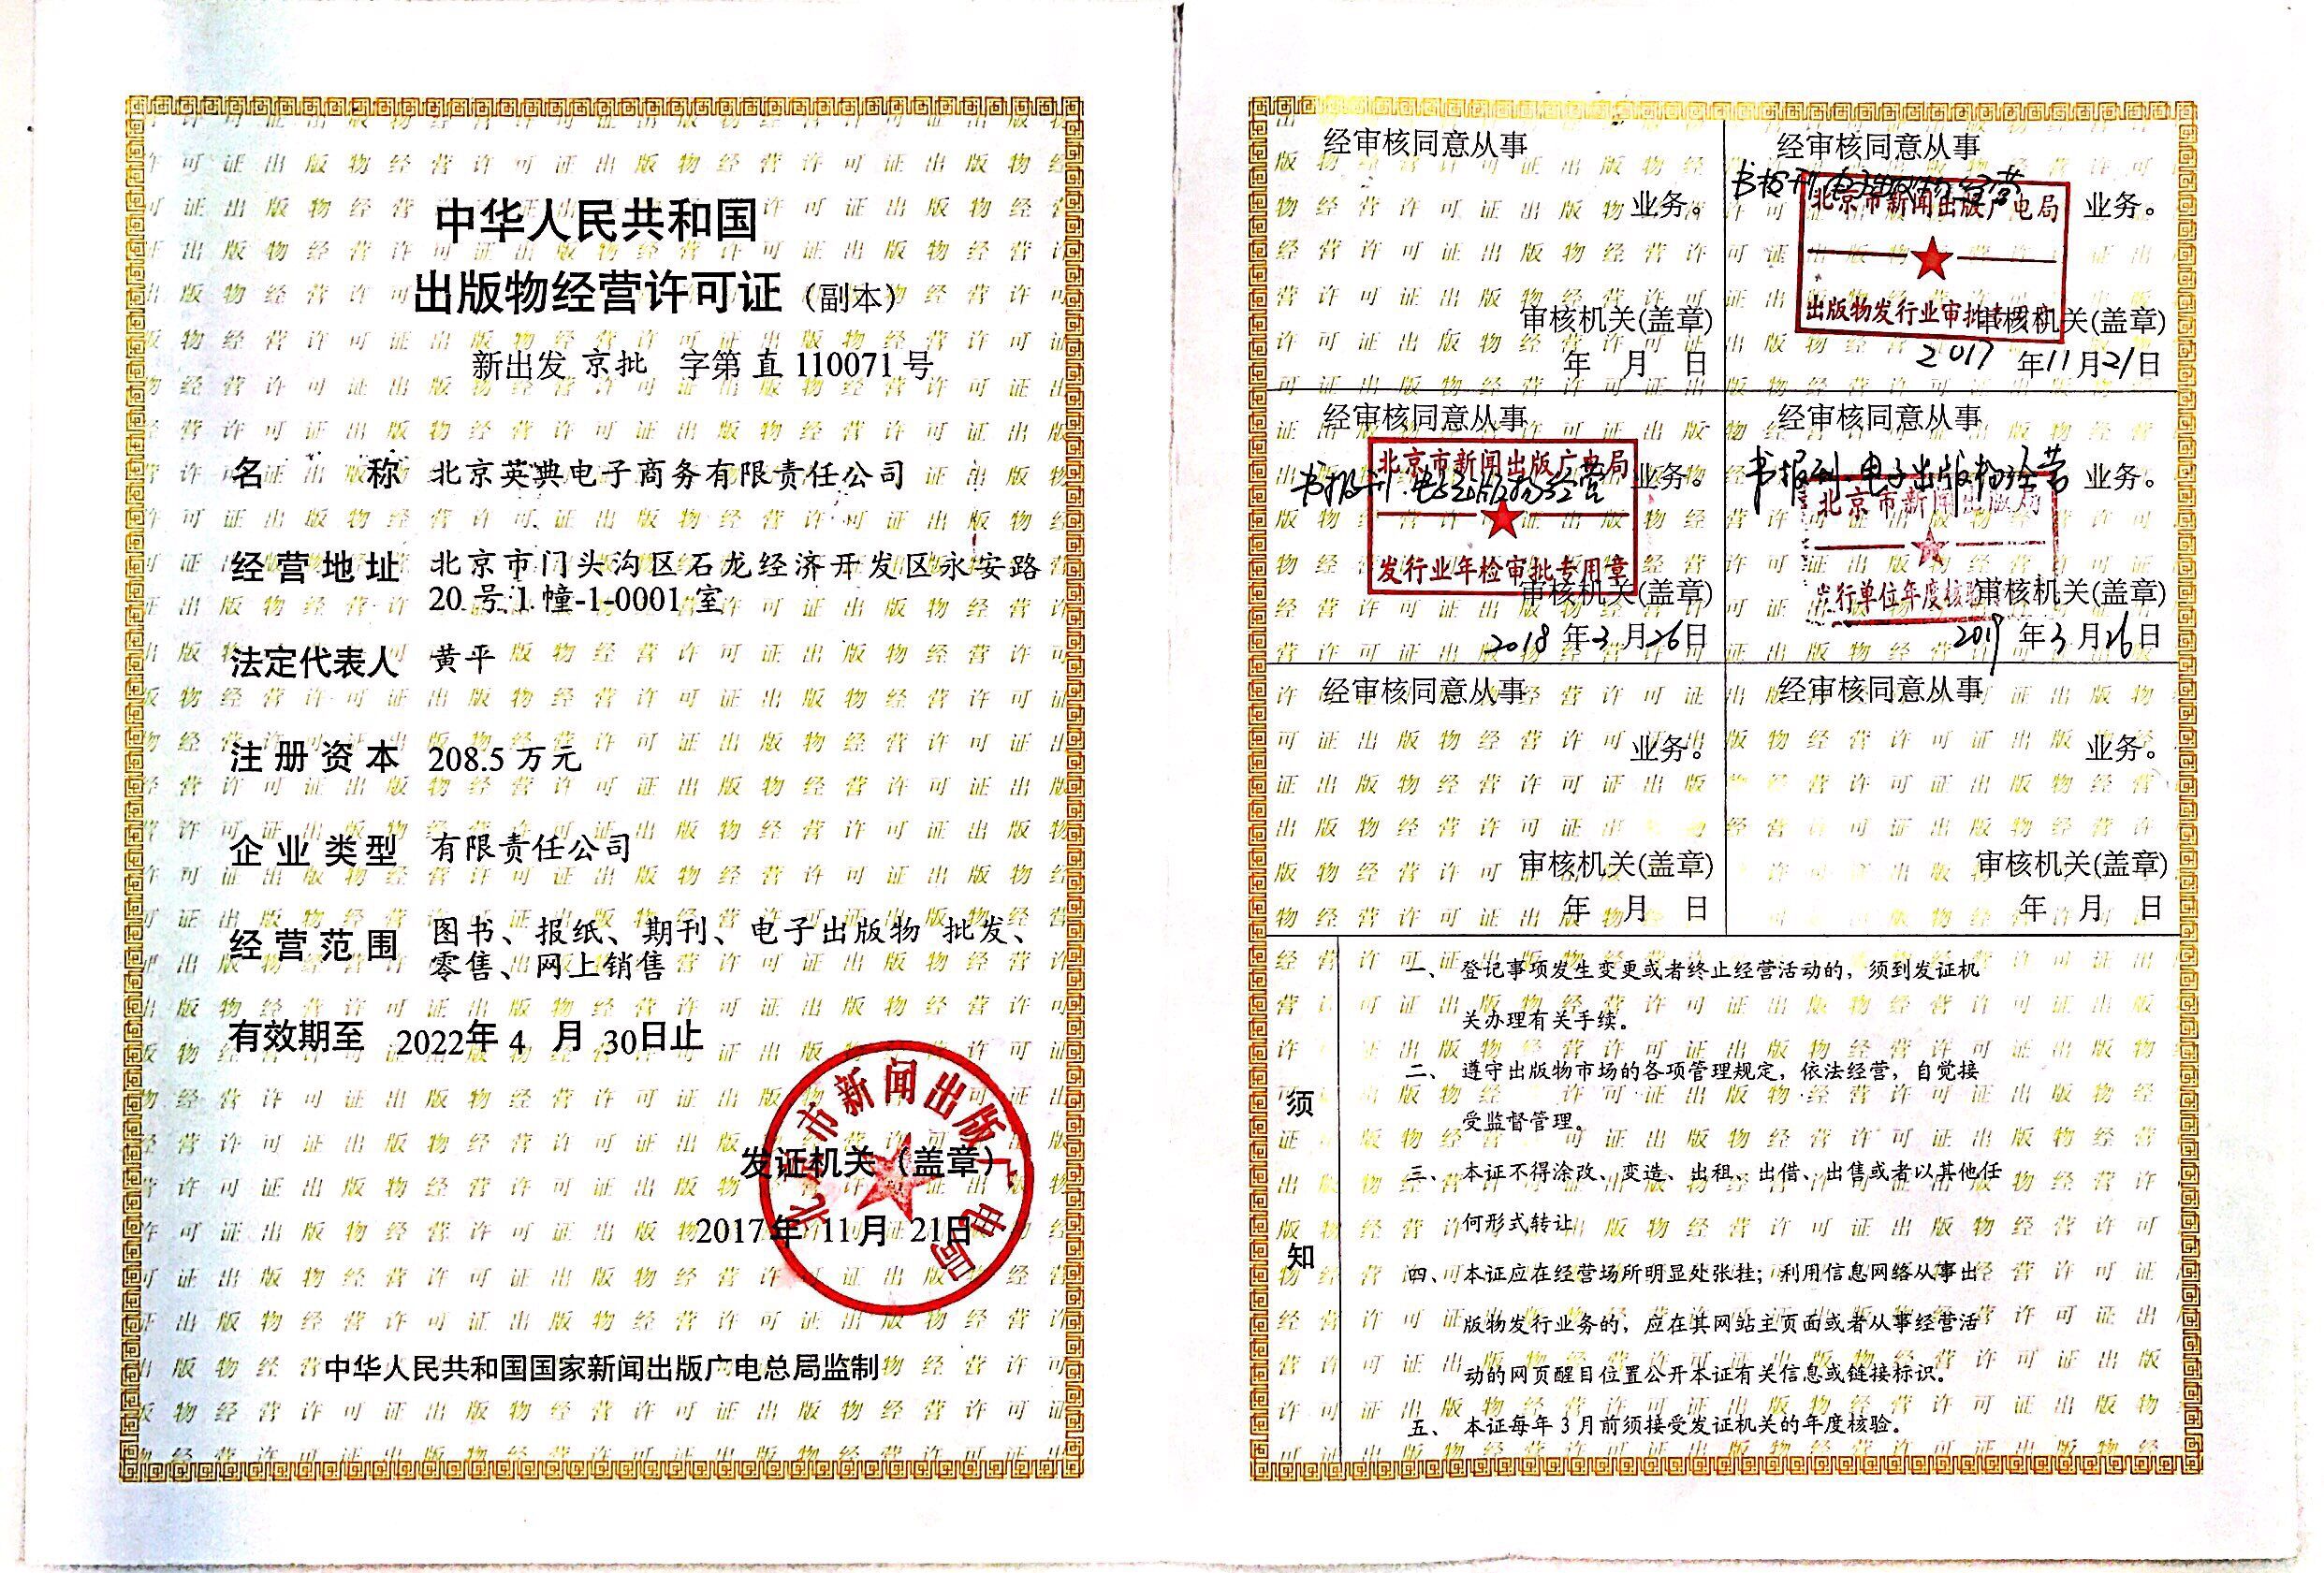 中华人民共和国
出版物经营许可证（副本）
新出发 京批 字第 直 110071 号
名 称 北京英典电子商务有限责任公司
经营地址 北京市门头沟区石龙经济开发区永安路
20 号 1 幢-1-0001 室
法定代表人 黄平
注册资本 208.5 万元
企业类型 有限责任公司
经营范围 图书、报纸、期刊、电子出版物 批发、
零售、网上销售
有效期至 2022年 4 月 30日止
北京市新闻出版广电局
发证机关（盖章）
2017年 11月 21日
中华人民共和国国家新闻出版广电总局监制
经审核同意从事
业务。
审核机关(盖章)
年 月 日
经审核同意从事
书报刊 电子出版物经营 业务。
北京市新闻出版广电局
出版物发行业审批专用章
审核机关(盖章)
2017 年11月21日
经审核同意从事
书报刊.电子出版物经营 业务。
北京市新闻出版广电局
发行业年检审批专用章
审核机关(盖章)
2018 年3月26日
经审核同意从事
书报刊.电子出版物经营 业务。
北京市新闻出版局
发行单位年度核验
审核机关(盖章)
2019 年3月26日
经审核同意从事
业务。
审核机关(盖章)
年 月 日
经审核同意从事
业务。
审核机关(盖章)
年 月 日
须知
一、登记事项发生变更或者终止经营活动的，须到发证机
关办理有关手续。
二、遵守出版物市场的各项管理规定，依法经营，自觉接
受监督管理。
三、本证不得涂改、变造、出租、出借、出售或者以其他任
何形式转让。
四、本证应在经营场所明显处张挂；利用信息网络从事出
版物发行业务的，应在其网站主页面或者从事经营活
动的网页醒目位置公开本证有关信息或链接标识。
五、本证每年 3 月前须接受发证机关的年度核验。